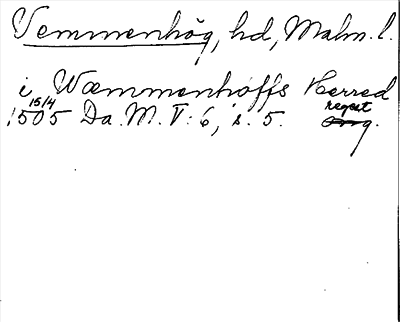 Vemmenhög, hd, Malm. l.
i Wæmmenhøffs Herred
15/4 1505 Da. M. V: 6, s. 5. regest